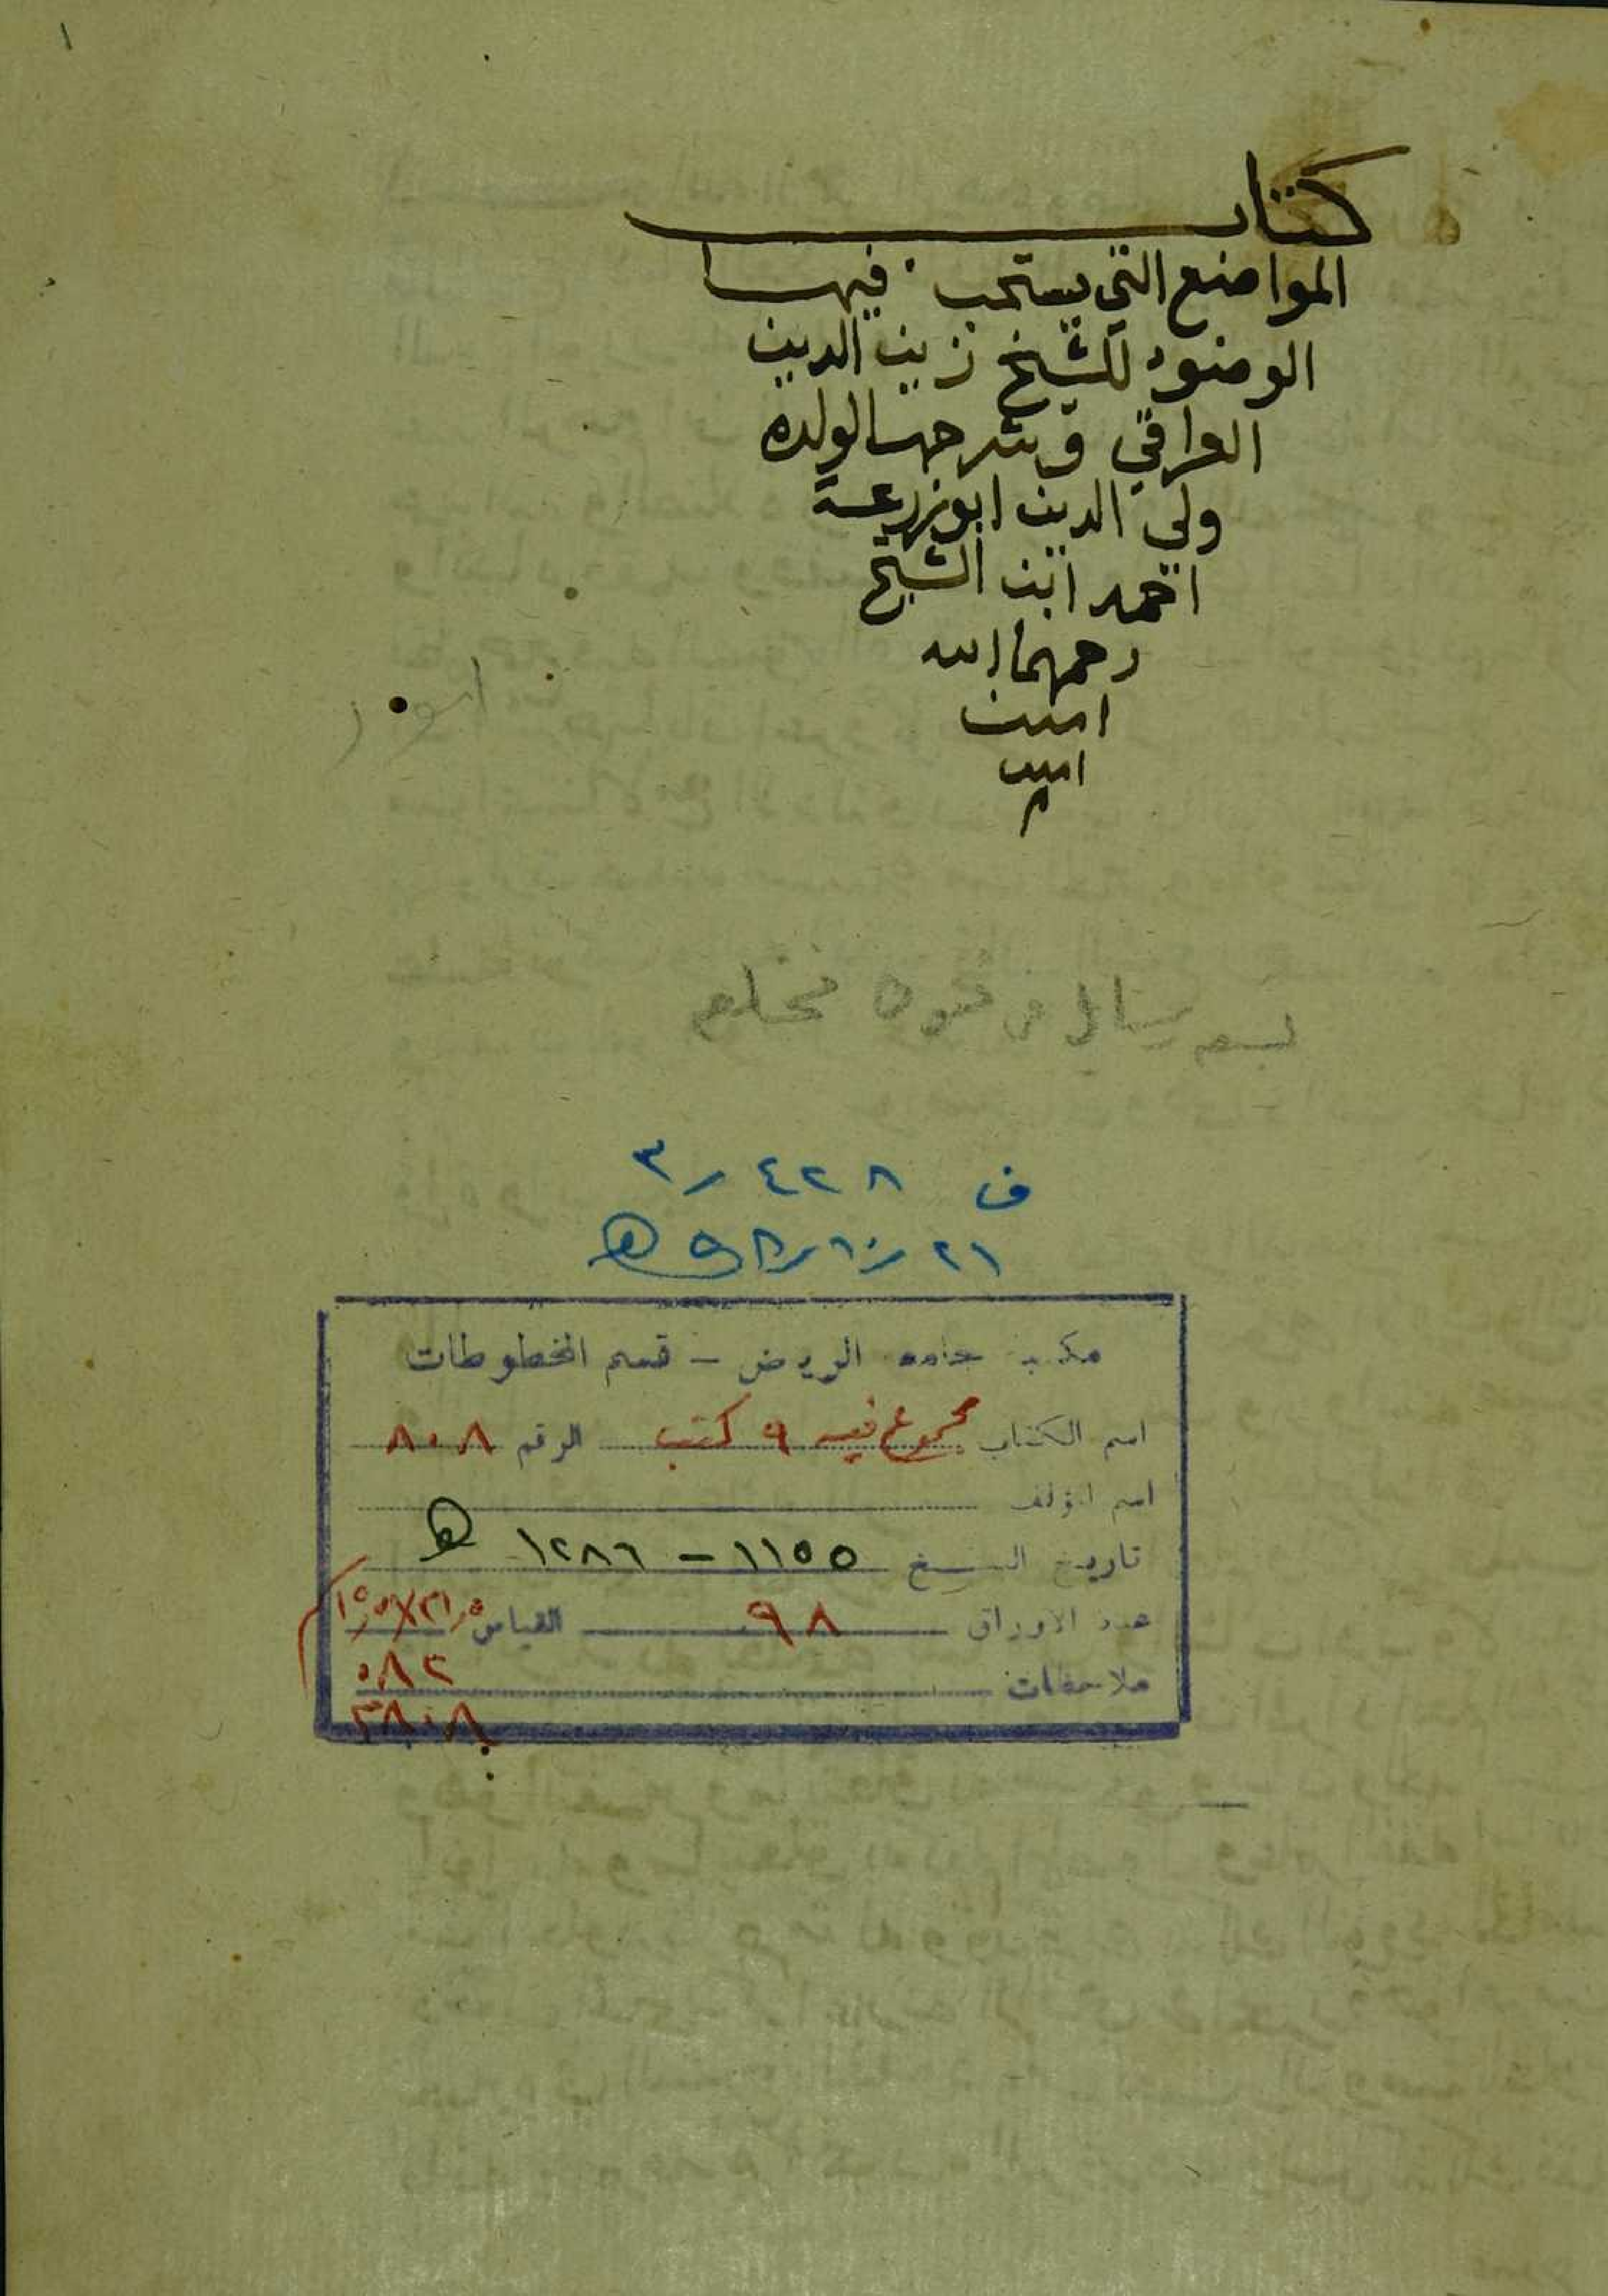 ١
كتاب
المواضع التي يستحب فيها
الوضوء للشيخ زين الدين
العراقي وشرحها لولده
ولي الدين ابو زرعة
احمد ابن الشيخ
رحمهما الله
امين
امين
م
رسائل من فنون
ف ٤٢٨ / ٣
مكتبة جامعة الرياض - قسم المخطوطات
اسم الكتاب مجموع فيه ٩ كتب الرقم ٨٠٨
اسم المؤلف
تاريخ النسخ ١١٥٥ - ١٢٨٦ هـ
عدد الاوراق ٩٨ القياس ٢١٫٥×١٥٫٥
ملاحظات